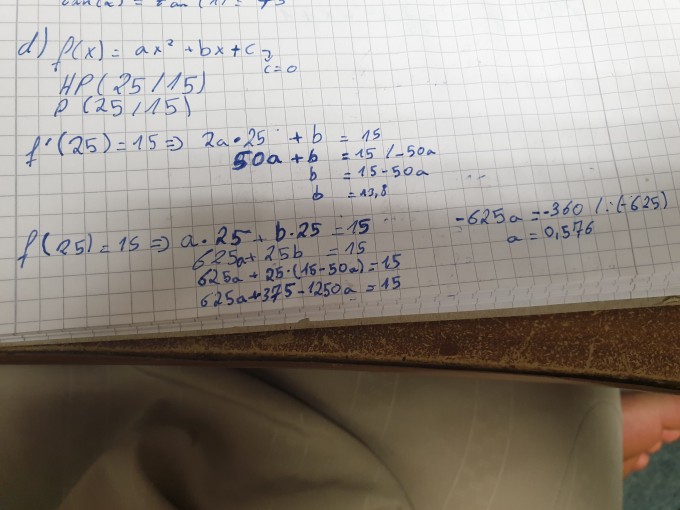 d) f(x) = ax² + bx + c
c = 0
HP (25/15)
P (25/15)
f'(25) = 15 => 2a·25 + b = 15
50a + b = 15 /-50a
b = 15-50a
b = -13,8
f(25) = 15 => a·25 + b·25 = 15
625a + 25b = 15
625a + 25·(15-50a) = 15
625a + 375 - 1250a = 15
-625a = -360 /:(-625)
a = 0,576